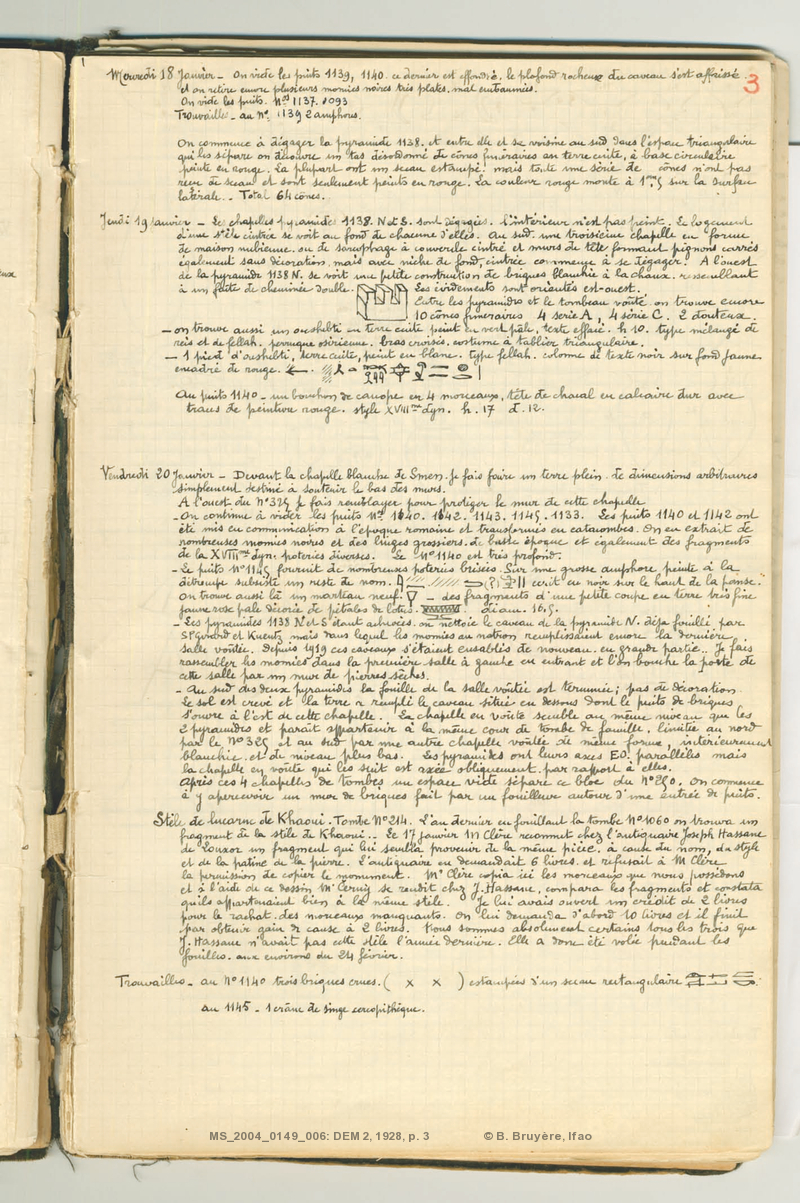 3
Mercredi 18 Janvier _ On vide les puits 1139, 1140. ce dernier est effondré. le plafond rocheux du caveau s'est affaissé.
et on retire encore plusieurs momies noires très plates, mal embaumées.
On vide les puits. Nos 1137. 1093
Trouvailles _ au No. 1139 2 amphores.
On commence à dégager la pyramide 1138. et entre elle et sa voisine au sud dans l'espace triangulaire
qui les sépare on découvre un tas désordonné de cônes funéraires en terre cuite, à base circulaire
peinte en rouge. La plupart ont un sceau estampé. mais toute une série de cônes n'ont pas
reçu de sceau et sont seulement peints en rouge. La couleur rouge monte à sur la surface
latérale. _ Total 64 cônes.
Jeudi 19 Janvier _ Les chapelles pyramides 1138. N et S. sont dégagées. l'intérieur n'est pas peint. Le logement
d'une stèle cintrée se voit au fond de chacune d'elles. Au sud une troisième chapelle en forme
de maison nubienne. ou de sarcophage à couvercle cintré et murs de tête formant pignons carrés
également sans décoration. mais avec niche de fond, cintrée commence à se dégager. A l'ouest
de la pyramide 1138 N. se voit une petite construction de briques blanchie à la chaux. ressemblant
à un faîte de cheminée double. Les évidements sont orientés est-ouest.
Entre les pyramides et le tombeau voûté on trouve encore
10 cônes funéraires 4 série A, 4 série C. 2 douteux.
_ on trouve aussi un oushebti en terre cuite peint en vert pâle, texte effacé. h. 10. type mélangé de
reis et de fellah. perruque osirienne. bras croisés. costume à tablier triangulaire.
_ 1 pied d'oushebti, terre cuite, peint en blanc. type fellah. colonne de texte noir sur fond jaune
encadré de rouge.
Au puits 1140 _ un bouchon de canope en 4 morceaux, tête de chacal en calcaire dur avec
traces de peinture rouge. style XVIIIme dyn. h. 17 d. 12.
Vendredi 20 Janvier _ Devant la chapelle blanche de Smen. je fais faire un terre plein de dimensions arbitraires
simplement destiné à soutenir le bas des murs.
A l'ouest du No 325 je fais remblayer pour protéger le mur de cette chapelle
_ On continue à vider les puits Nos 1140. 1142. 1143. 1145. 1133. Les puits 1140 et 1142 ont
été mis en communication à l'époque romaine et transformés en catacombes. On en extrait de
nombreuses momies noires et des linges grossiers. de basse époque et également des fragments
de la XVIIIme dyn. poteries diverses. Le No 1140 est très profond.
_ Le puits No 1145 fournit de nombreuses poteries brisées. Sur une grosse amphore peinte à la
détrempe subsiste un reste de nom. écrit en noir sur le haut de la panse.
On trouve aussi là un marteau neuf. _ des fragments d'une petite coupe en terre très fine
jaune rose pâle décorée de pétales de lotus. diam. 16.5.
_ Les pyramides 1138 N et S étant achevées. on nettoie le caveau de la pyramide N. déjà fouillé par
St P Girard et Kuentz mais dans lequel les momies au natron remplissaient encore la dernière
salle voûtée. Depuis 1919 ces caveaux s'étaient ensablés de nouveau. en grande partie. Je fais
rassembler les momies dans la première salle à gauche en entrant et l'on bouche la porte de
cette salle par un mur de pierres sèches.
_ Au sud des deux pyramides la fouille de la salle voûtée est terminée; pas de décoration.
Le sol est crevé et la terre a rempli le caveau situé en dessous dont le puits de briques
s'ouvre à l'est de cette chapelle. La chapelle en voûte semble au même niveau que les
2 pyramides et paraît appartenir à la même cour de tombe de famille. limitée au nord
par le No 325 et au sud par une autre chapelle voûtée de même forme, intérieurement
blanchie. et de niveau plus bas. Les pyramides ont leurs axes EO. parallèles mais
la chapelle en voûte qui les suit est axée obliquement par rapport à elles.
Après ces 4 chapelles de tombes un espace vide sépare ce bloc du No 290. On commence
à y apercevoir un mur de briques fait par un fouilleur autour d'une entrée de puits.
Stèle de lucarne de Khaoui. Tombe No 214. L'an dernier en fouillant la tombe No 1060 on trouva un
fragment de la stèle de Khaoui.. Le 17 janvier M Clère reconnut chez l'antiquaire Joseph Hassane
de Louxor un fragment qui lui sembla provenir de la même pièce, à cause du nom, du style
et de la patine de la pierre. L'antiquaire en demandait 6 livres. et refusait à M Clère
la permission de copier le monument. Mr Clère copia ici les morceaux que nous possédons
et à l'aide de ce dessin Mr Cerny se rendit chez J. Hassane, compara les fragments et constata
qu'ils appartenaient bien à la même stèle. Je lui avais ouvert un crédit de 2 livres
pour le rachat. des morceaux manquants. On lui demanda d'abord 10 livres et il finit
par obtenir gain de cause à 2 livres. Nous sommes absolument certains tous les trois que
J. Hassane n'avait pas cette stèle l'année dernière. Elle a donc été volée pendant les
fouilles. aux environs du 24 février.
Trouvailles _ au No 1140 trois briques crues. ( x x ) estampées d'un sceau rectangulaire
au 1145 _ 1 crâne de singe cercopithèque.
MS_2004_0149_006: DEM 2, 1928, p. 3 © B. Bruyère, Ifao